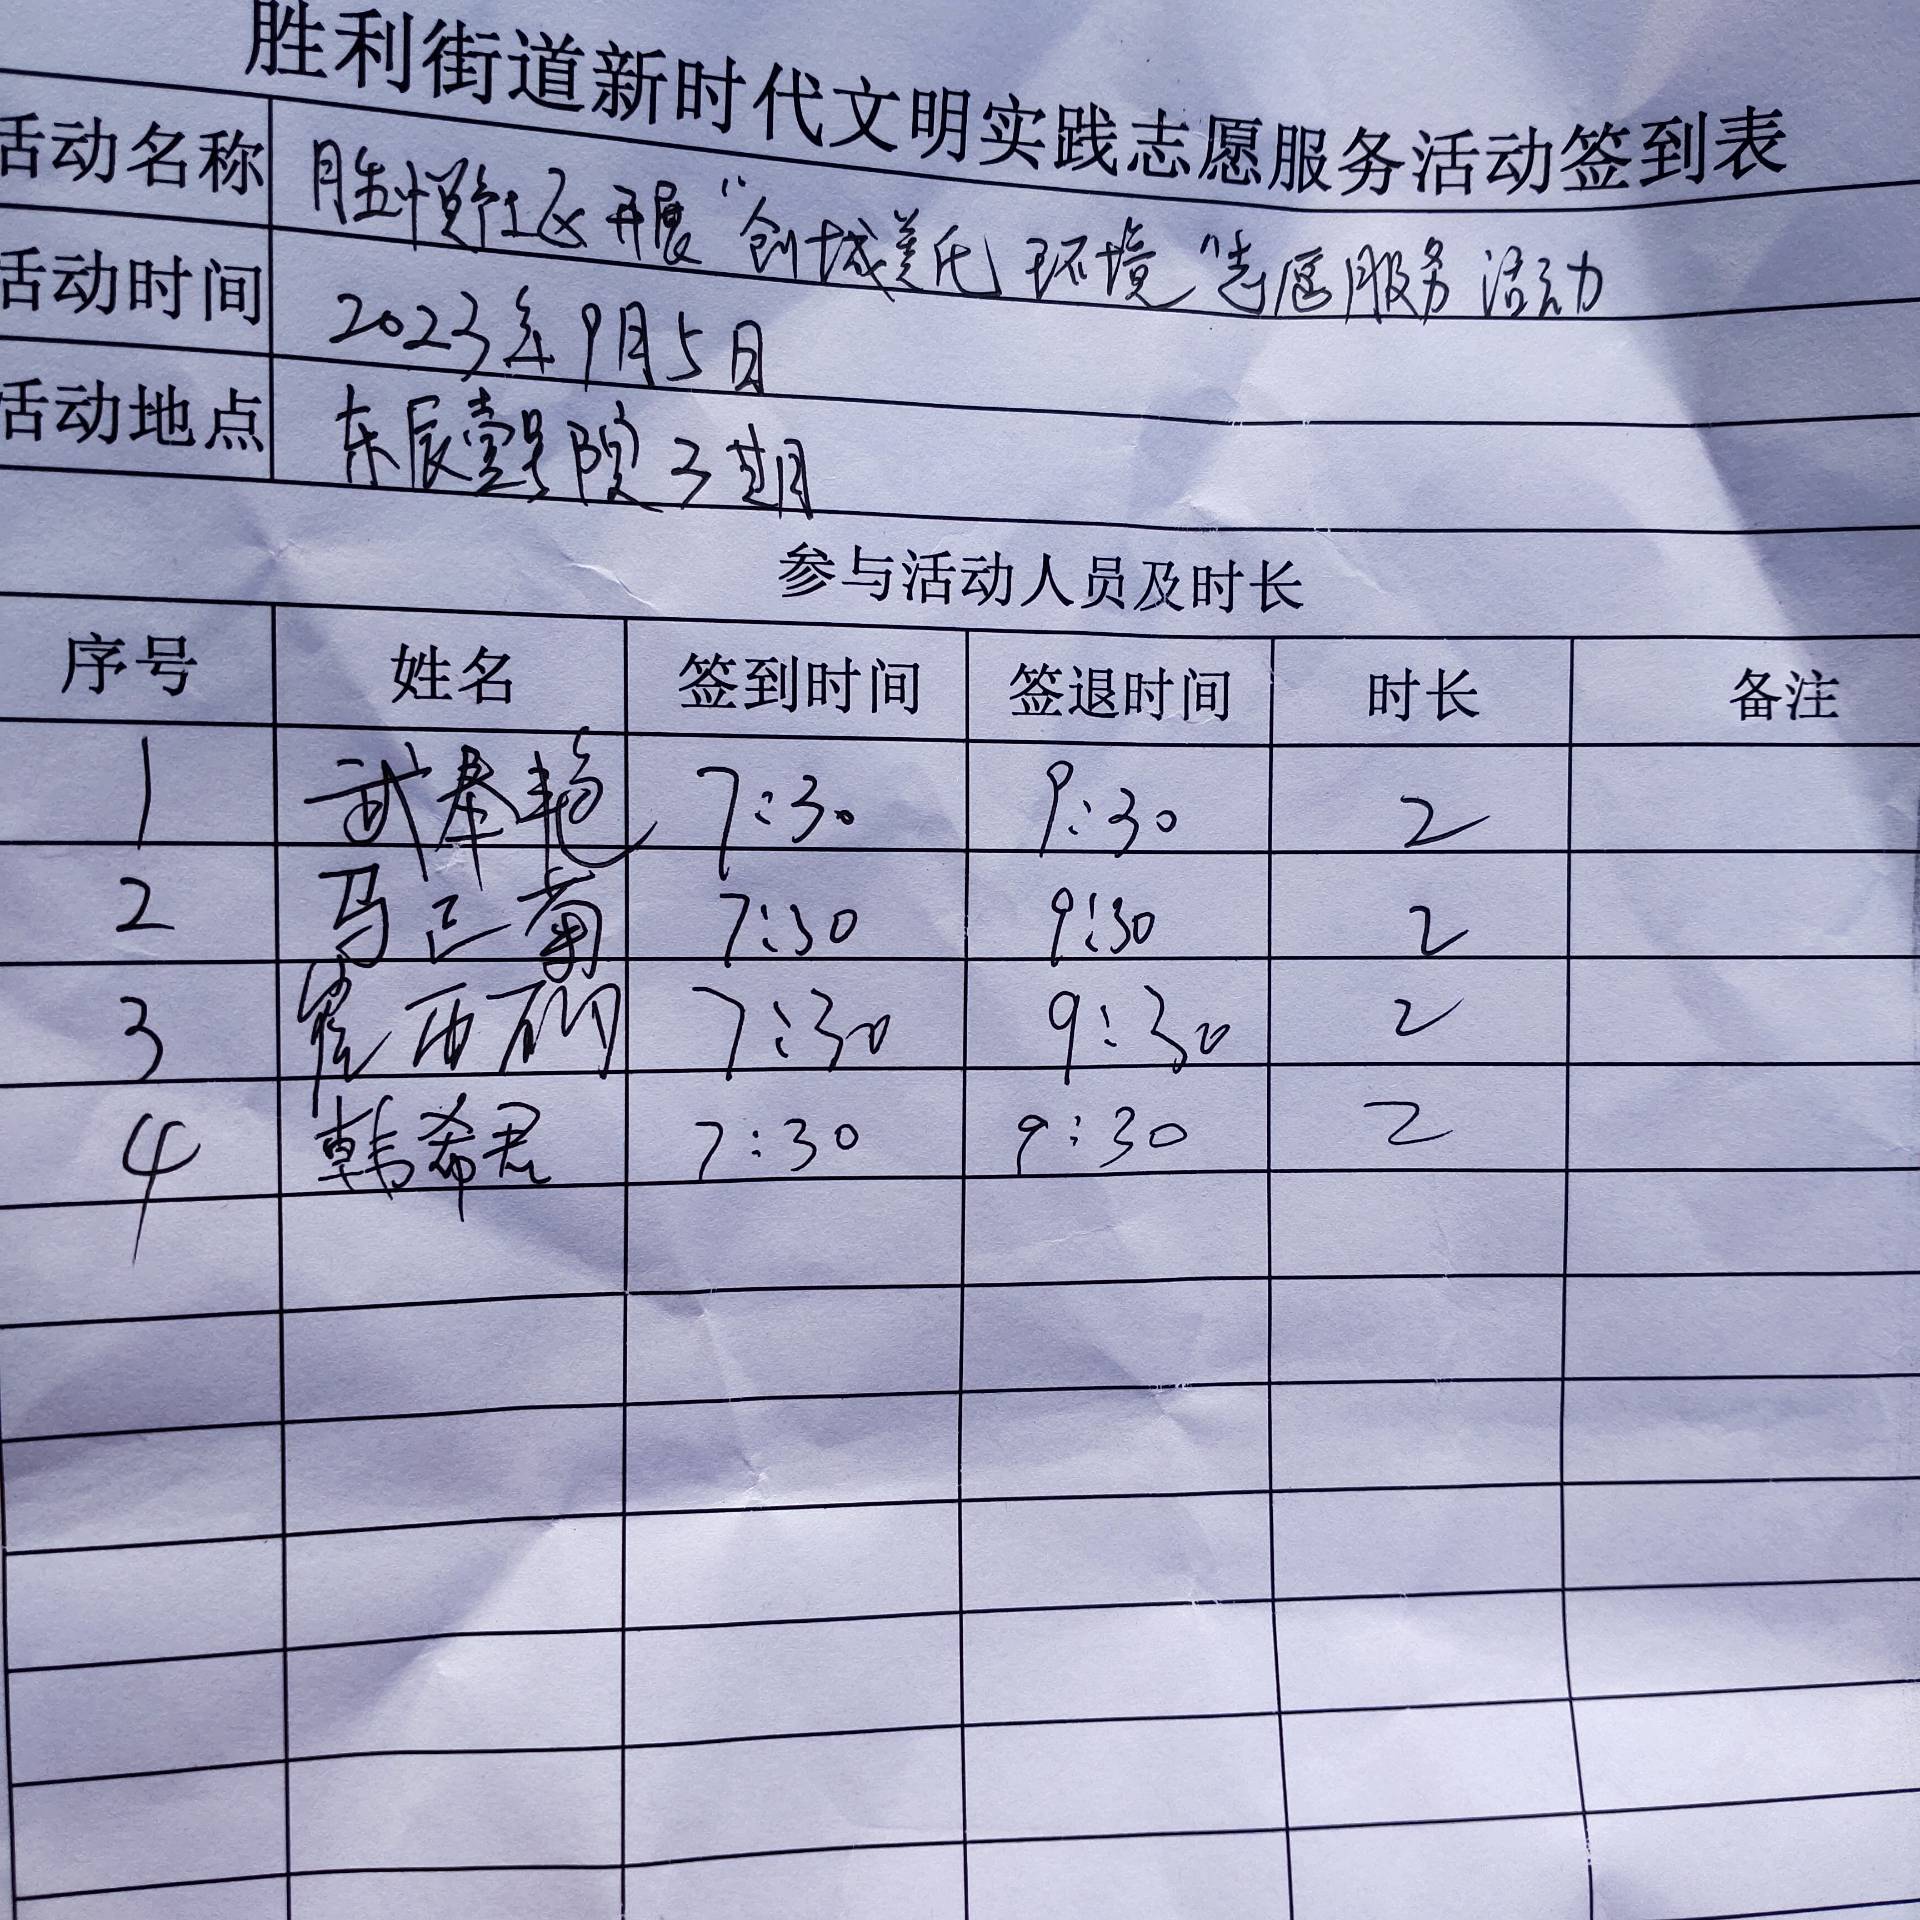 胜利街道新时代文明实践志愿服务活动签到表
活动名称 胜悦社区开展“创城美化环境”志愿服务活动
活动时间 2023年9月5日
活动地点 东辰壹号院3期
参与活动人员及时长
序号 姓名 签到时间 签退时间 时长 备注
1 武奉艳 7:30 9:30 2
2 马正菊 7:30 9:30 2
3 7:30 9:30 2
4 韩希君 7:30 9:30 2